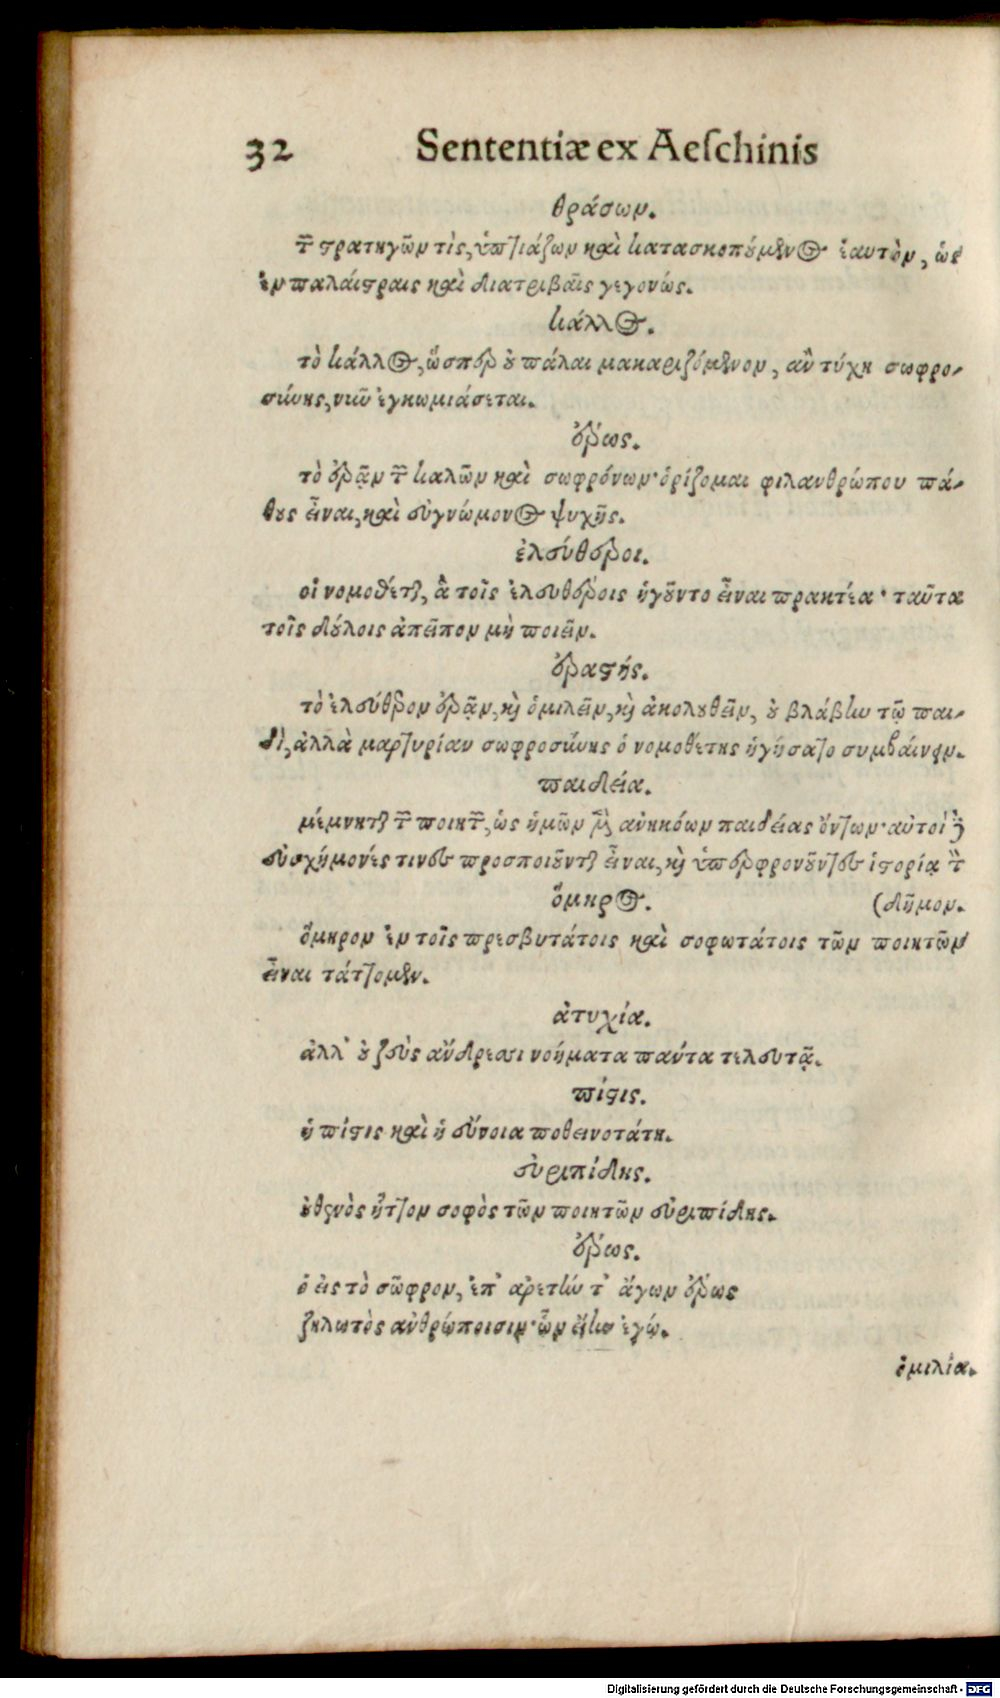 32 Sententiæ ex Aeſchinis
θράσων.
τῶν στρατηγῶν τὶς, ὑπτιάζων καὶ κατασκοπούμενος ἑαυτὸν, ὡς
ἐν παλαίστραις καὶ διατριβαῖς γεγονώς.
κάλλος.
τὸ κάλλος, ὥσπερ οὐ πάλαι μακαριζόμενον, ἂν τύχῃ σωφρο-
σύνης, νῦν ἐγκωμιάσεται.
ἔρως.
τὸ ἐρᾷν τῶν καλῶν καὶ σωφρόνων· ὁρίζομαι φιλανθρώπου πά-
θους εἶναι, καὶ εὐγνώμονος ψυχῆς.
ἐλεύθεροι.
οἱ νομοθέται, ἃ τοῖς ἐλευθέροις ἡγοῦντο εἶναι πρακτέα· ταῦτα
τοῖς δούλοις ἀπεῖπον μὴ ποιεῖν.
ἐραστής.
τὸ ἐλεύθερον ἐρᾷν, καὶ ὁμιλεῖν, καὶ ἀκολουθεῖν, οὐ βλάβην τῷ παι-
δὶ, ἀλλὰ μαρτυρίαν σωφροσύνης ὁ νομοθέτης ἡγήσατο συμβαίνειν.
παιδεία.
μέμνηται τῶν ποιητῶν, ὡς ἡμῶν μὲν ἀνηκόων παιδείας ὄντων· αὐτοὶ δὲ
εὐσχήμονές τινες προσποιοῦνται εἶναι, καὶ ὑπερφρονοῦντες ἱστορίᾳ τὸν
ὅμηρος. (δῆμον.
ὅμηρον ἐν τοῖς πρεσβυτάτοις καὶ σοφωτάτοις τῶν ποιητῶν
εἶναι τάττομεν.
ἀτυχία.
ἀλλ' οὐ ζεὺς ἄνδρεσσι νοήματα πάντα τελευτᾷ.
πίστις.
ἡ πίστις καὶ ἡ εὔνοια ποθεινοτάτη.
εὐριπίδης.
οὐθενὸς ἧττον σοφὸς τῶν ποιητῶν εὐριπίδης.
ἔρως.
ὁ εἰς τὸ σῶφρον, ἐπ' ἀρετὴν τ' ἄγων ἔρως
ζηλωτὸς ἀνθρώποισιν· ὧν εἴην ἐγώ.
ὁμιλία.
Digitalisierung gefördert durch die Deutsche Forschungsgemeinschaft - DFG